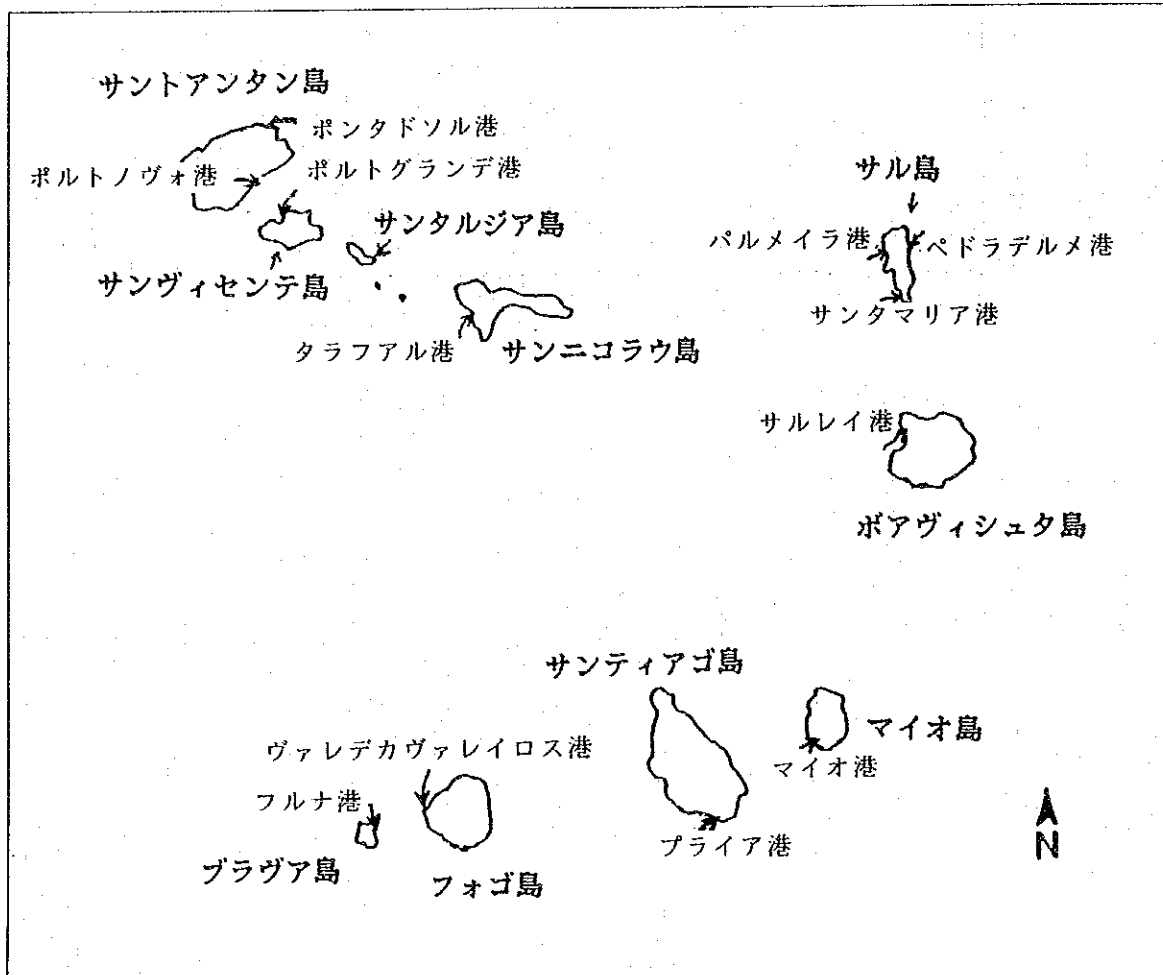 サントアンタン島
ポンタドソル港
ポルトノヴォ港
ポルトグランデ港
サンタルジア島
サンヴィセンテ島
タラフアル港
サンニコラウ島
サル島
パルメイラ港
ペドラデルメ港
サンタマリア港
サルレイ港
ボアヴィシュタ島
サンティアゴ島
マイオ島
マイオ港
プライア港
ヴァレデカヴァレイロス港
フルナ港
ブラヴァ島
フォゴ島
N